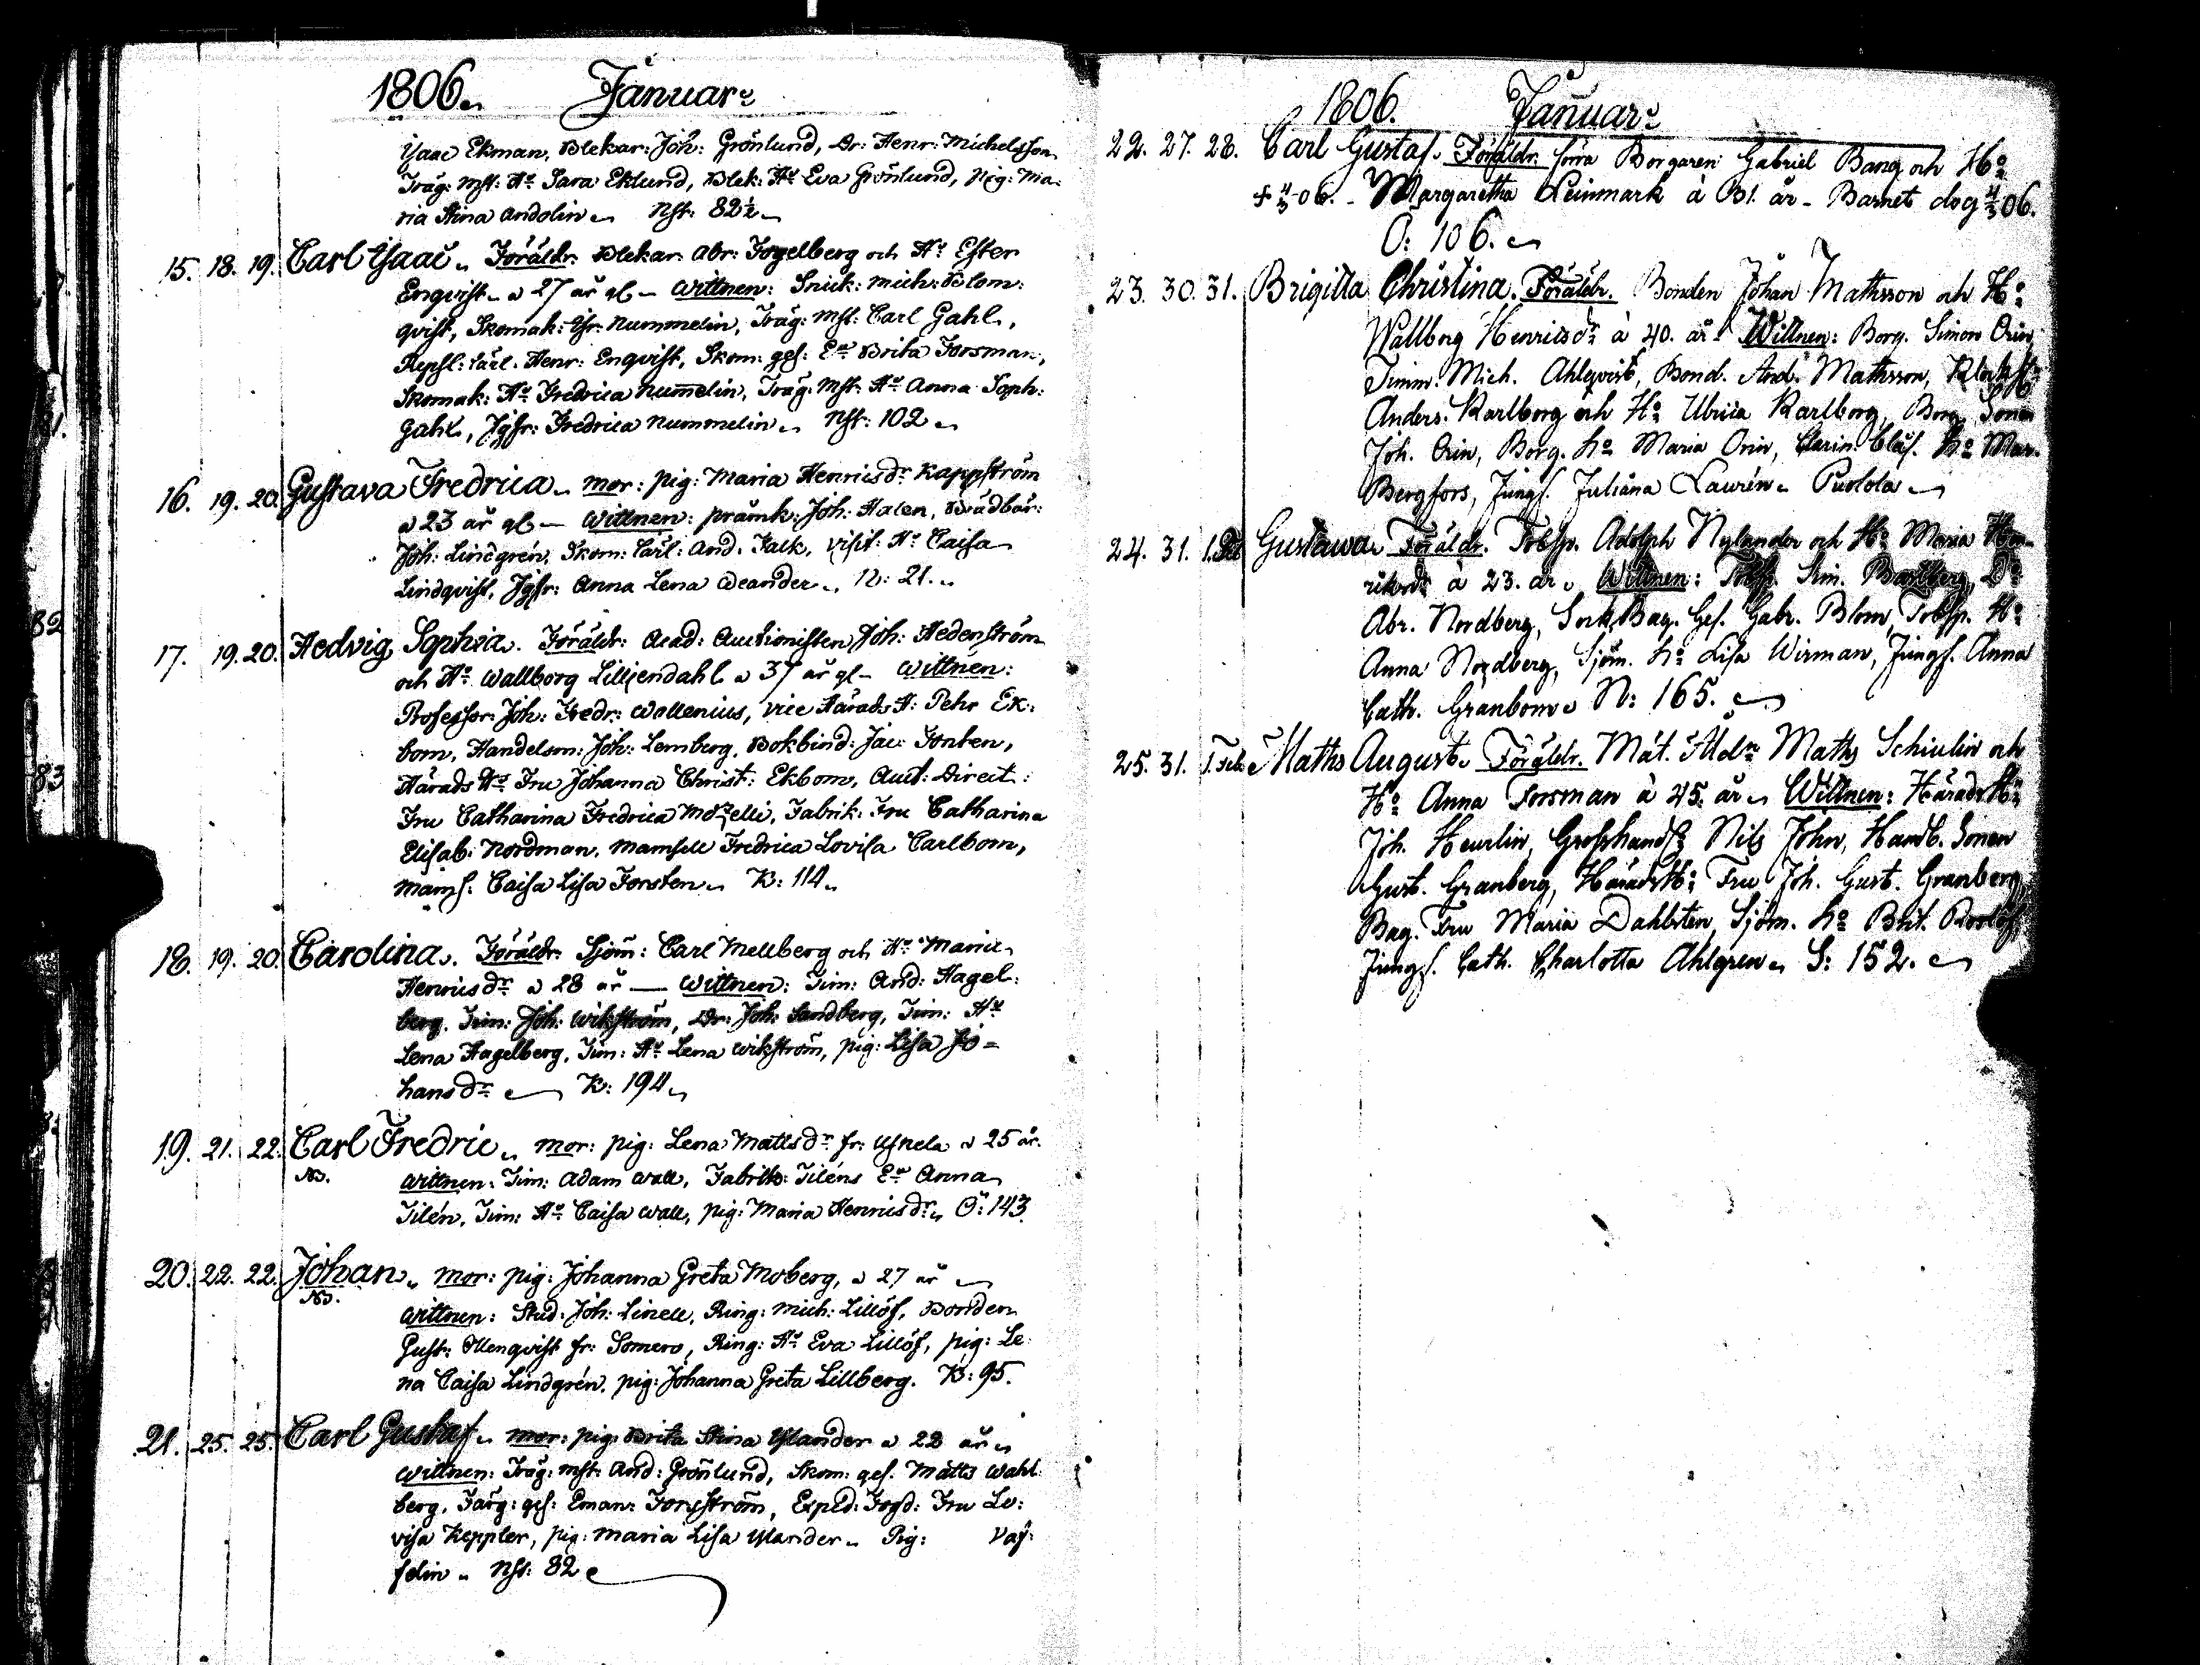 1806. Januar:
Isaac Ekman, Blekar: Joh: Grönlund, Dr: Henr: Michelsson
Träg: Mst: Hu Sara Eklund, Blek: Hu Eva Grönlund, Pig: Ma:
ria Stina Andolin Nst: 82½
15. 18. 19. Carl Isaac. Föräldr: Blekar: Abr: Fogelberg och Hu Ester
Enqvist a 27 år gl – Wittnen: Snick: Mich: Blom:
qvist, Skomak: Gfr: Nummelin, Träg: Mst: Carl Gahl,
Repsl: Lärl. Henr: Enqvist, Skom: ges: En Brita Forsman,
Skomak: Hu Fredrica Nummelin, Träg: Mst: Hu Anna Soph:
Gahl, Jgfr: Fredrica Nummelin. Nst: 102
16. 19. 20. Gustava Fredrica. Mor: pig: Maria Henricsdr Kappström
a 23 år gl – Wittnen: Prämk: Joh: Halen, Brädbär:
Joh: Lindgrén, Skom: Lärl: And. Falk, Visit: Hu Caisa
Lindqvist, Jgfr: Anna Lena Weander. N: 21.
17. 19. 20. Hedvig Sophia. Föräldr: Acad: Auctionisten Joh: Hedenström
och Hu Wallborg Lilljendahl a 37 år gl – Wittnen:
Professor: Joh: Fredr: Wallenius, Vice Härads H: Pehr Ek:
bom, Handelsm: Joh: Lemberg, Bokbind: Jac: Fonten,
Härads Hs Fru Johanna Christ: Ekbom, Auct: Direct:
Fru Catharina Fredrica Mozelli, Fabrik: Fru Catharina
Elisab: Nordman, Mamsell Fredrica Lovisa Carlbom,
Mams. Caisa Lisa Forsten. K: 114.
18. 19. 20. Carolina. Föräldr: Sjöm: Carl Mellberg och Hu Maria
Henricsdr a 28 år — Wittnen: Tim: And: Hagel:
berg, Tim: Joh: Wikström, Dr: Joh: Sandberg, Tim: Hu
Lena Hagelberg, Tim: Hu Lena Wikström, pig: Lisa Jo=
hansdr K: 194
19. 21. 22. Carl Fredric. Mor: pig: Lena Mattsdr fr: Uskela a 25 år.
Nb. Wittnen: Tim: Adam Wall, Fabriks: Tiléns En Anna
Tilén, Tim: Hu Caisa Wall, pig: Maria Henricsdr. O: 143
20. 22. 22. Johan. Mor: pig: Johanna Greta Moberg, a 27 år
Nb.
Wittnen: Stud: Joh: Linell, Ring: Mich: Lillöf, Bonden
Gust: Ollenqvist fr: Somero, Ring: Hu Eva Lillöf, pig: Le
na Caisa Lindgrén, pig: Johanna Greta Lillberg. K: 95.
21. 25. 25. Carl Gustaf. Mor: pig: Brita Stina Ylander a 22 år
Wittnen: Träg: Mst: And: Grönlund, Skom: ges. Matts Wahl
berg, Färg: ges: Eman: Forsström, Exped: Fogd: Fru Lo:
visa Keppler, pig: Maria Lisa Ylander. Pig:
felin. Nst: 82
1806. Januar:
22. 27. 28. Carl Gustaf. Föräldr. förra Borgaren Gabriel Bang och Ho:
Margaretha Leinmark à 31. år – Barnet dog 4/3 06.
O: 106.
23. 30. 31. Brigitta Christina. Föräldr. Bonden Johan Mathsson och Ho:
Wallborg Henricsdr à 40. år. Wittnen: Borg. Simon Orin
Timm. Mich. Ahlqvist, Bond. And. Mathsson,
Anders Karlborg och Ho: Ulrica Karlborg, Borg. Sonen
Joh. Orin, Borg. ho Maria Orin, ho Mar.
Bergfors, Jungf. Juliana Laurén. Puolola
24. 31. 1. Feb. Gustawa. Föräldr. Tobsp. Adolph Nylander och Ho Maria Hen
ricsdr à 23. år. Wittnen: Tobsp. Sim. Do
Abr. Nordberg, Sock. Bag. Ges. Gabr. Blom, Tobsp. Ho
Anna Nordberg, Sjöm. ho Lisa Wirman, Jungf. Anna
Cath. Granbom. N: 165.
25. 31. 1. Feb. Maths August. Föräldr. Mät. Åldn Maths Schiulin och
Ho: Anna Forsman à 45. år. Wittnen: Härads H:
Joh. Heurlin, Grosshandl: Nils John, Handl. Sonen
Gust. Granberg, Härads H: Fru Joh. Gust. Granberg,
Bag. Fru Maria Dahlsten, Sjöm. ho Brit.
Jungf. Cath. Charlotta Ahlgren. S: 152.